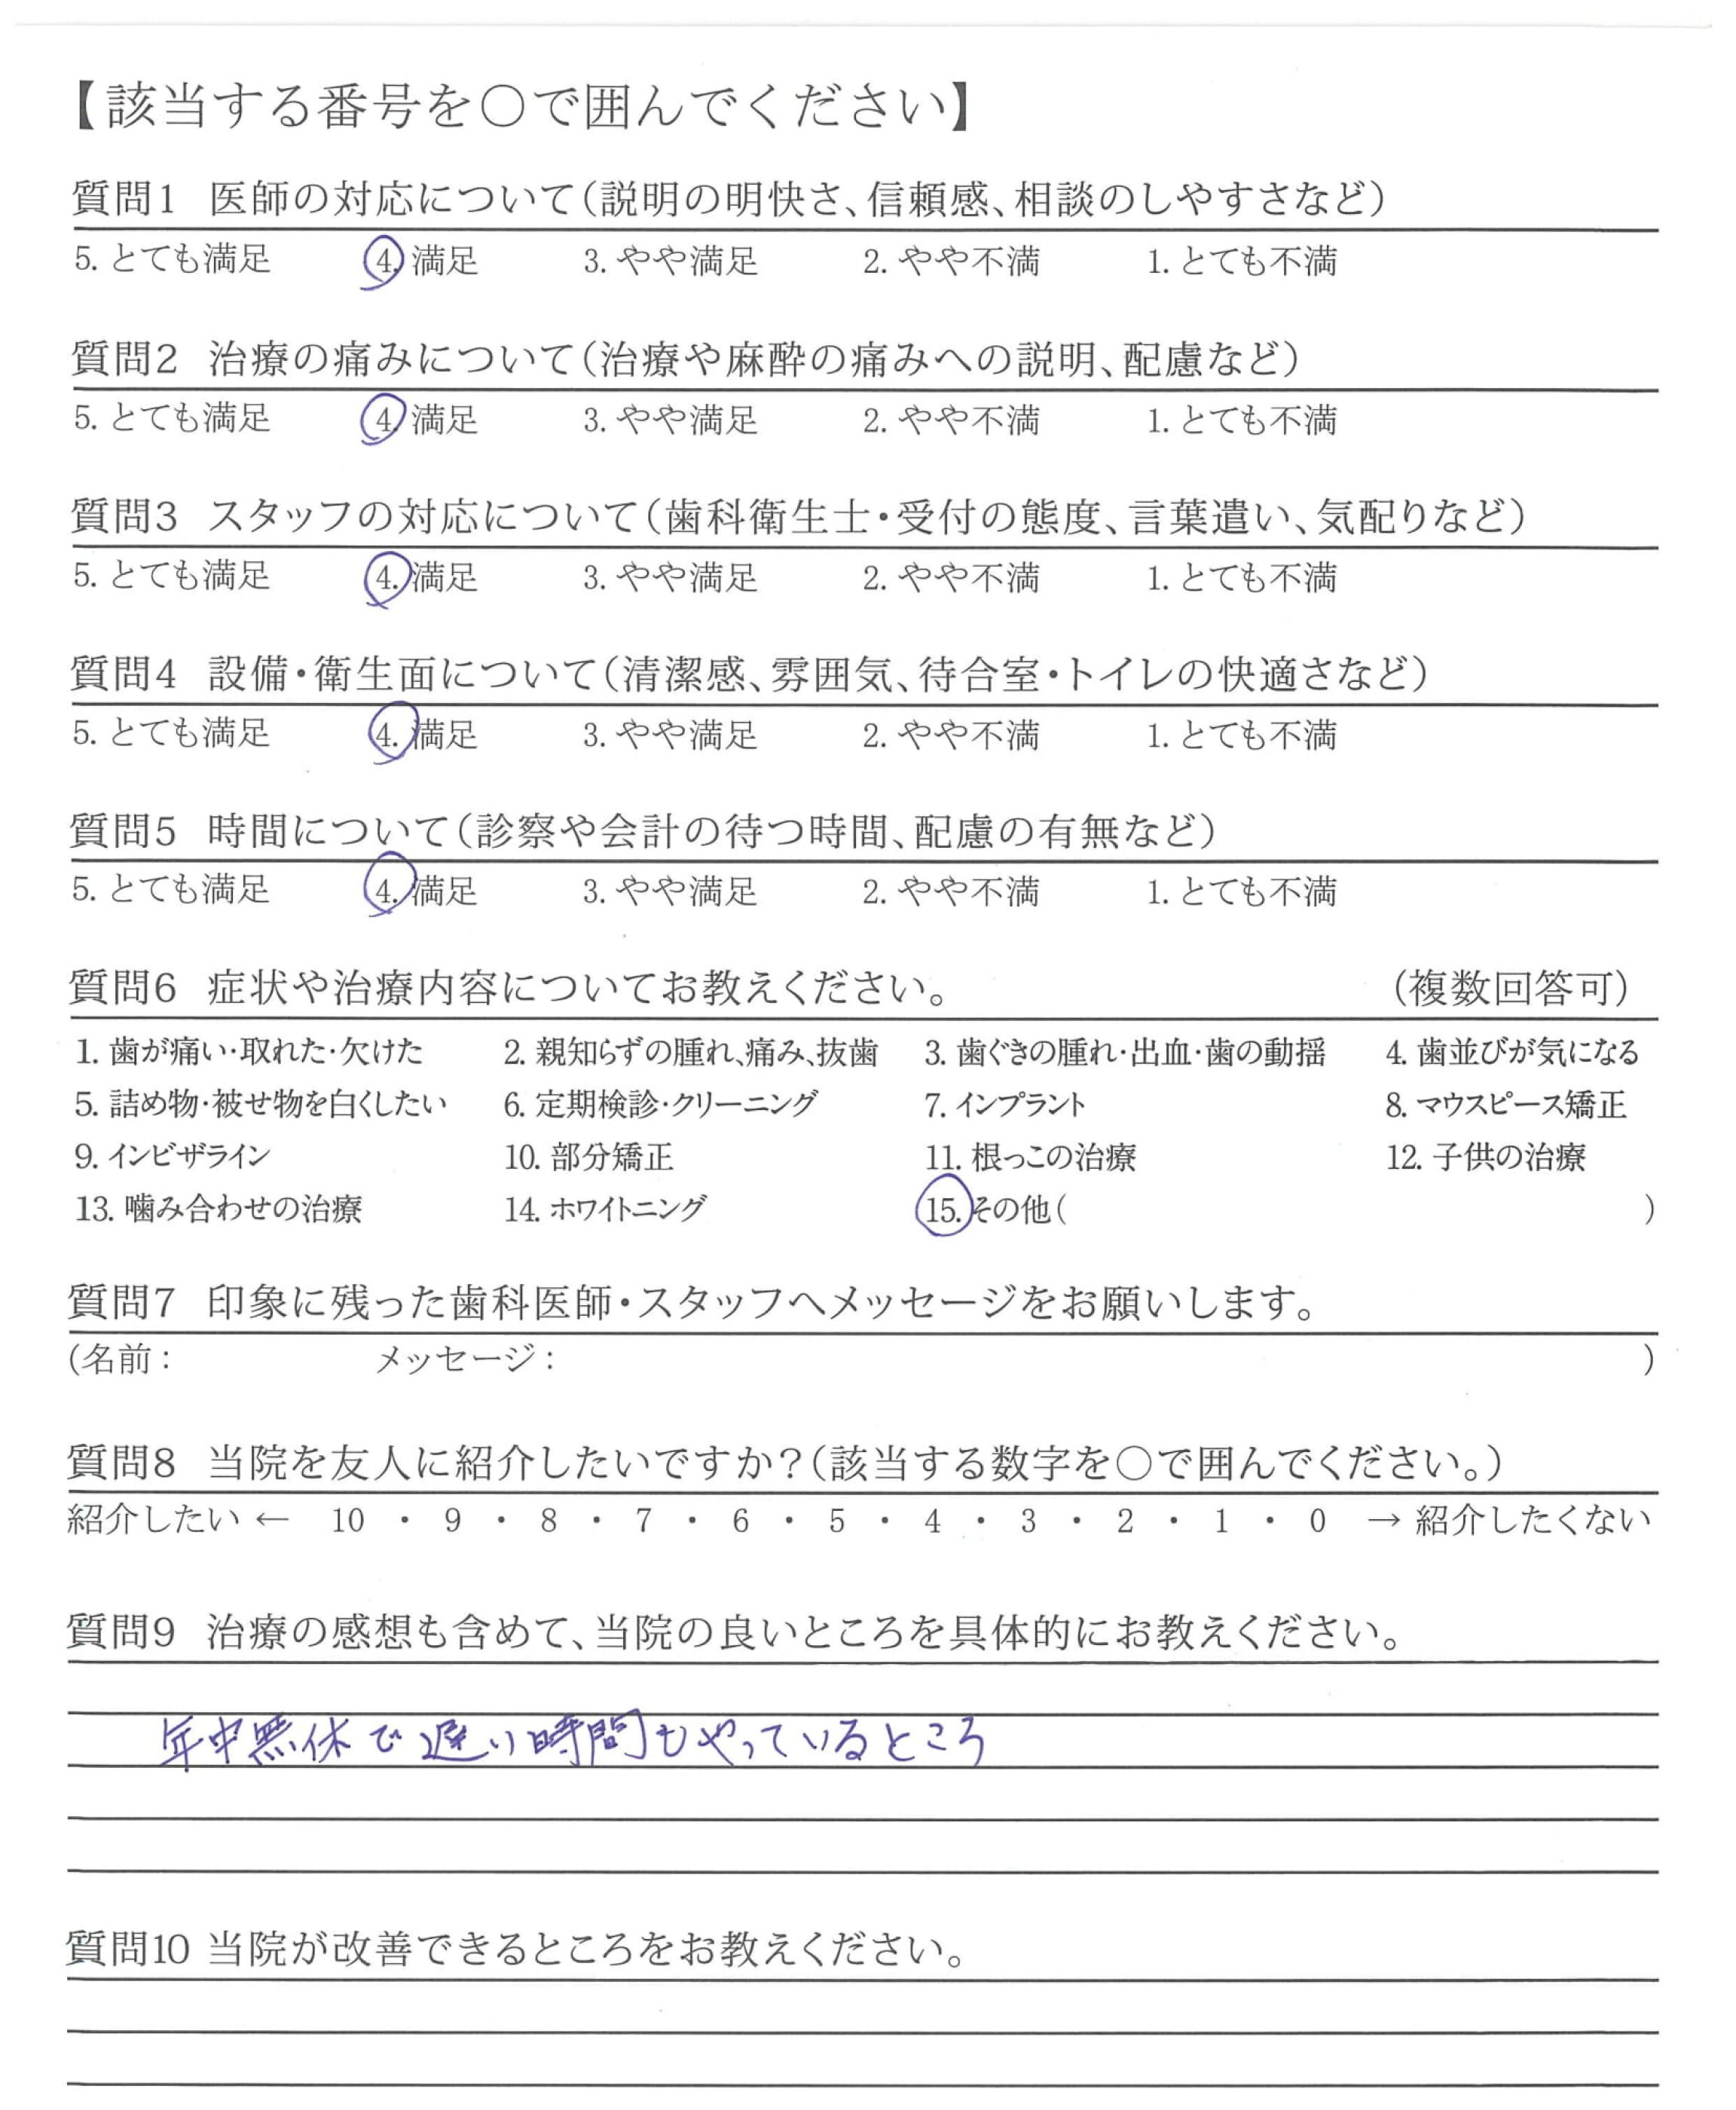 【該当する番号を○で囲んでください】
質問1 医師の対応について(説明の明快さ、信頼感、相談のしやすさなど)
5. とても満足 4. 満足 3. やや満足 2. やや不満 1. とても不満
質問2 治療の痛みについて(治療や麻酔の痛みへの説明、配慮など)
5. とても満足 4. 満足 3. やや満足 2. やや不満 1. とても不満
質問3 スタッフの対応について(歯科衛生士・受付の態度、言葉遣い、気配りなど)
5. とても満足 4. 満足 3. やや満足 2. やや不満 1. とても不満
質問4 設備・衛生面について(清潔感、雰囲気、待合室・トイレの快適さなど)
5. とても満足 4. 満足 3. やや満足 2. やや不満 1. とても不満
質問5 時間について(診察や会計の待つ時間、配慮の有無など)
5. とても満足 4. 満足 3. やや満足 2. やや不満 1. とても不満
質問6 症状や治療内容についてお教えください。 (複数回答可)
1. 歯が痛い・取れた・欠けた 2. 親知らずの腫れ、痛み、抜歯 3. 歯ぐきの腫れ・出血・歯の動揺 4. 歯並びが気になる
5. 詰め物・被せ物を白くしたい 6. 定期検診・クリーニング 7. インプラント 8. マウスピース矯正
9. インビザライン 10. 部分矯正 11. 根っこの治療 12. 子供の治療
13. 噛み合わせの治療 14. ホワイトニング 15. その他( )
質問7 印象に残った歯科医師・スタッフへメッセージをお願いします。
(名前: メッセージ: )
質問8 当院を友人に紹介したいですか?(該当する数字を○で囲んでください。)
紹介したい ← 10 ・ 9 ・ 8 ・ 7 ・ 6 ・ 5 ・ 4 ・ 3 ・ 2 ・ 1 ・ 0 → 紹介したくない
質問9 治療の感想も含めて、当院の良いところを具体的にお教えください。
年中無休で遅い時間もやっているところ
質問10 当院が改善できるところをお教えください。